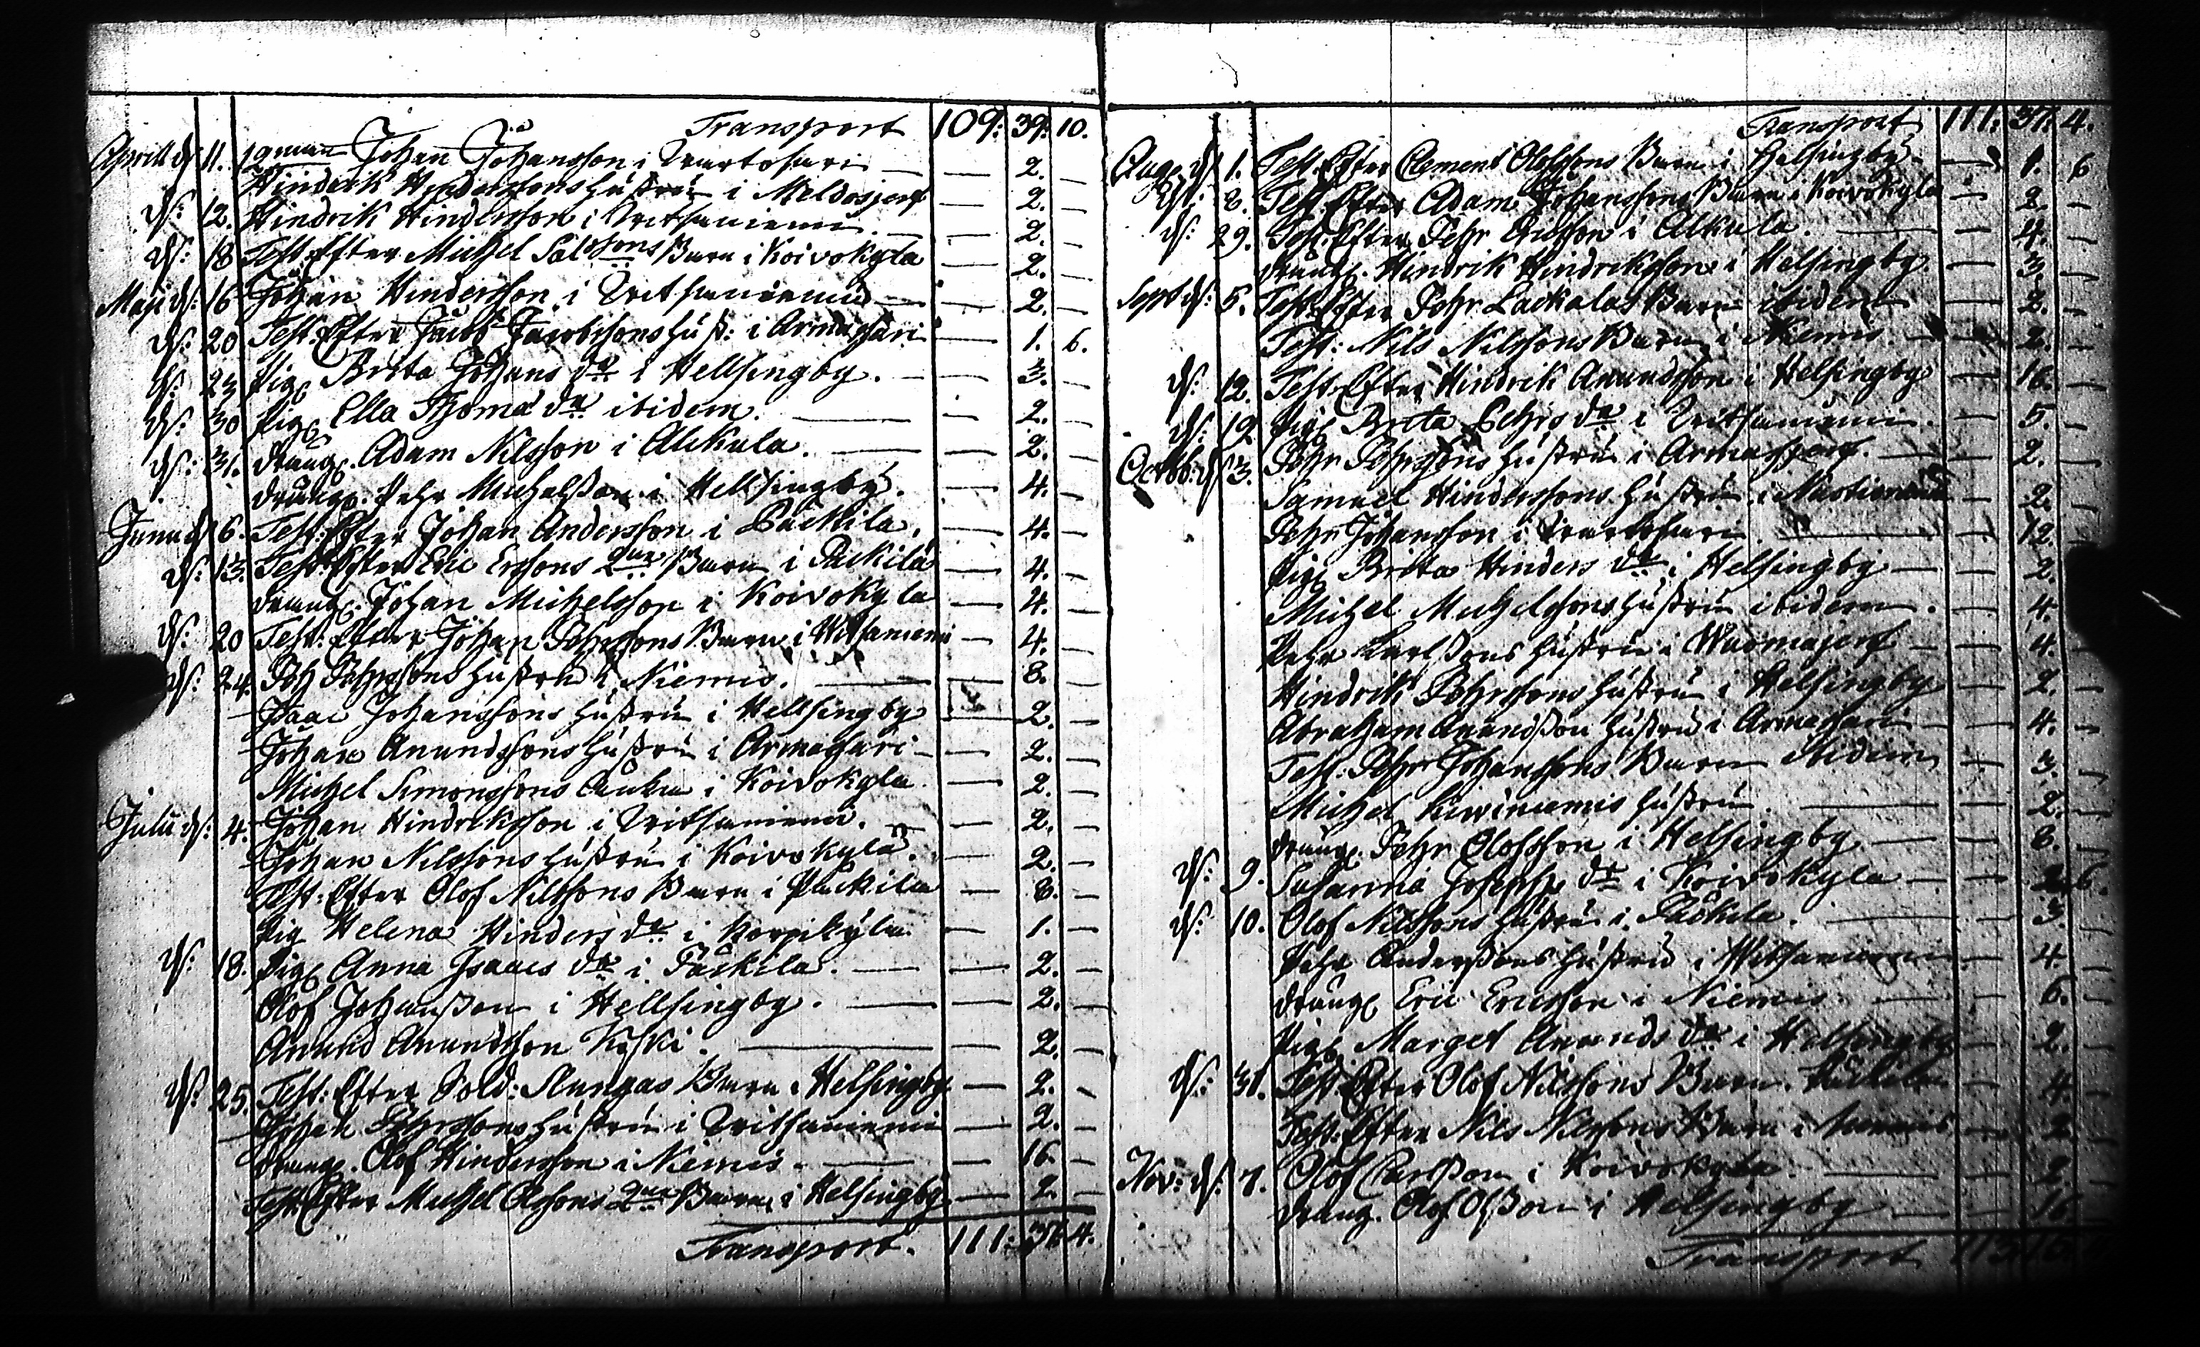 Transport 109: 39: 10.
Aprill d: 11. Johan Johansson i — 2. —
Hindrich Hinderssons hustru i Meldosjerf — 2. —
d: 12. Hindrik Hindersson i Vitsaniemi — 2. —
d: 18 Test: Efter Michel Salssons Barn i Koivokyla — 2. —
Maji d: 16 Johan Hindersson i Vitsaniemi — 2. —
d: 20 Test: Efter Jacob Jacobssons hust: i Armasari — 1. 6.
d: 23 Pig. Brita Johans dr i Hellsingby. — 3. —
d: 30 Pig. Ella Thomæ dr ibidem. — 2. —
d: 31. dräng. Adam Nilsson i Alkula. — 2. —
dräng. Pehr Michelsson i Hellsingby. — 4. —
Junii d: 6. Test: Efter Johan Andersson i Päckila. — 4. —
d: 13. Test: Efter Eric Erssons 2ne Barn i Päckilä — 4. —
dräng. Johan Michelsson i Koivokyla — 4. —
d: 20 Test: Efter Johan Pehrssons Barn i Witsaniemi — 4. —
d: 24. Pehrssons hustru i Niemis. — 8. —
Isaac Johanssons hustru i Hellsingby — 2. —
Johan Anundssons hustru i Armasari — 2. —
Michel Simonssons Änka i Koivokyla — 2. —
Julii d: 4. Johan Hindriksson i Vitsaniemi. — 2. —
Johan Nilssons hustru i Koivokylä. — 2. —
Test: Efter Olof Nilssons Barn i Päckila — 8. —
Pig Helena Hinders dr i Korpikyla — 1. —
d: 18. Pig. Anna Isaacs dr i Päckila. — 2. —
Olof Johansson i Hellsingby. — 2. —
Anund Anundsson Koski. — 2. —
d: 25. Test: Efter Sold: Barn i Helsingby — 2. —
Johan Pehrssons hustru i Vitsaniemi — 2. —
dräng. Olof Hindersson i Niemis. — 16. —
Test: Efter Michel Olssons 2ne Barn i Helsingby — 2. —
Transport. 111: 37. 4.
Transport 111: 37. 4.
Aug. d: 1. Test: Efter Clement Olofssons Barn i Helsingby — 1. 6
d: 8. Test: Efter Adam Johanssons Barn i Koivokyla — 2. —
d: 29. Test: Efter Pehr i Alkula. — 4. —
dräng. Hindrik Hindriksson i Helsingby. — 3. —
Sept d: 5. Test: Efter Pehr Lackalas Barn ibidem — 2. —
Test: Nils Nilssons Barn i Niemis. — 2. —
d: 12. Test: Efter Hindrik Anundsson i Helsingby — 16. —
d: 19 Pig. Brita Pehrs dr i Vitsaniemi. — 5. —
Octob: d: 3. Pehr Pehrssons hustru i Armasjerf. — 2. —
Samuel Hinderssons hustru i — 2. —
Pehr Johansson i — 12. —
Pig. Brita Hinders dr i Helsingby — 2. —
Michel Michelssons hustru ibidem. — 4. —
Pehr Carlssons hustru i Wuomajerf — 4. —
Hindrik Pehrssons hustru i Helsingby — 2. —
Abraham Anundsson hustru i Armasari — 4. —
Test: Pehr Johanssons Barn ibidem — 3. —
Michel hustru. — 2. —
dräng. Pehr Olofsson i Helsingby — 8. —
d: 9. Susanna Josephs dr i Koivokyla — 6.
d: 10. Olof Nilssons hustru i Päckila. — 3. —
Pehr Anderssons hustru i Witsaniemi — 4. —
dräng. Eric Ericsson i Niemis — 6. —
Pig. Marget Anunds dr i Helsingby — 2. —
d: 31. Test: Efter Olof Nilssons Barn. Päckila — 4. —
Test: Efter Nils Nilssons Barn i Niemis — 2. —
Nov: d: 7. Olof Carlsson i Koivokyla — 2. —
dräng. Olof Olsson i Helsingby — 16.
Transport